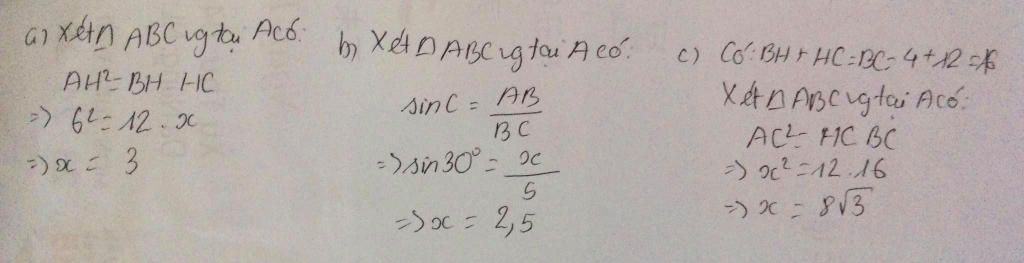 a) Xét △ ABC vg tại A có:
AH² = BH HC
=> 6² = 12 . x
=> x = 3
b) Xét △ ABC vg tại A có:
sin C = AB / BC
=> sin 30° = x / 5
=> x = 2,5
c) Có: BH + HC = BC = 4 + 12 = 16
Xét △ ABC vg tại A có:
AC² = HC BC
=> x² = 12 . 16
=> x = 8√3